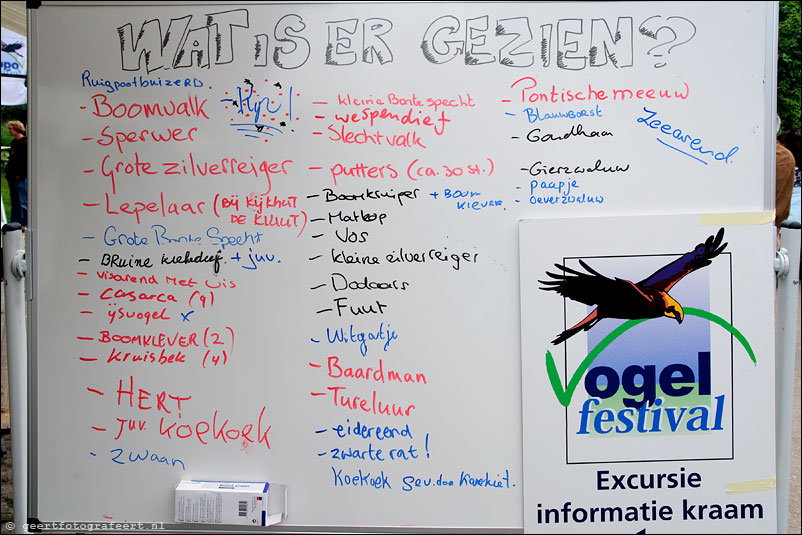 WAT IS ER GEZIEN?
Ruigpootbuizerd.
- Boomvalk
- Sperwer
- Grote zilverreiger
- Lepelaar (Bij Kijkhut
DE KLUUT)
- Grote Bonte Specht
- BRuine kiekedief + juv.
- Visarend met vis
- Casarca (9)
- ijsvogel x
- BOOMKLEVER (2)
- Kruisbek (4)
- HERT
- juv. Koekoek
- Zwaan
- kleine Bonte specht
- wespendief
- Slechtvalk
- putters (ca. 30 st.)
- Boomkruiper + BOOM
KLEVER.
- Matkop
- Vos
- Kleine zilverreiger
- Dodaars
- Fuut
- Witgatje
- Baardman
- Tureluur
- eidereend
- zwarte rat!
Koekoek gev. door Karekiet.
- Pontische meeuw
- Blauwborst
- Goudhaan
Zeearend.
- Gierzwaluw
- paapje
- oeverzwaluw
Vogel
festival
Excursie
informatie kraam
© geertfotografeert.nl